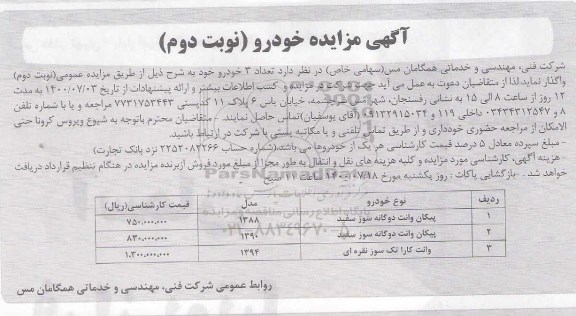 آگهی مزایده خودرو (نوبت دوم)
شرکت فنی، مهندسی و خدماتی همگامان مس(سهامی خاص) در نظر دارد تعداد ۳ خودرو خود به شرح ذیل از طریق مزایده عمومی(نوبت دوم)
واگذار نماید.لذا از متقاضیان دعوت به عمل می آید جهت شرکت در مزایده و کسب اطلاعات بیشتر و ارائه پیشنهادات از تاریخ ۱۴۰۰/۰۷/۰۳ به مدت
۱۲ روز از ساعت ۸ الی ۱۵ به نشانی رفسنجان، شهر مس سرچشمه، خیابان یاس ۶ پلاک ۱۱ کدپستی ۷۷۳۱۷۵۳۴۴۳ مراجعه و یا با شماره تلفن
۸ و ۰۳۴۳۴۳۱۲۵۴۷ داخلی ۱۱۹ و ۰۹۱۳۲۹۱۵۰۳۴ (آقای یوسفیان)تماس حاصل نمایند. - متقاضیان محترم باتوجه به شیوع ویروس کرونا حتی
الامکان از مراجعه حضوری خودداری و از طریق تماس تلفنی و یا مکاتبه پستی با شرکت در ارتباط باشید.
- مبلغ سپرده معادل ۵ درصد قیمت کارشناسی هر یک از خودروها می باشد.(شماره حساب ۲۲۵۲۰۸۳۲۶۶ نزد بانک تجارت)
- هزینه آگهی، کارشناسی مورد مزایده و کلیه هزینه های نقل و انتقال به طور مجزا از مبلغ مورد فروش ازبرنده مزایده در هنگام تنظیم قرارداد دریافت
خواهد شد . - بازگشایی پاکات : روز یکشنبه مورخ ۱۴۰۰/۰۷/۱۸ ساعت
ردیف نوع خودرو مدل قیمت کارشناسی(ریال)
۱ پیکان وانت دوگانه سوز سفید ۱۳۸۸ ۷۵۰,۰۰۰,۰۰۰
۲ پیکان وانت دوگانه سوز سفید ۱۳۹۰ ۸۳۰,۰۰۰,۰۰۰
۳ وانت کارا تک سوز نقره ای ۱۳۹۴ ۱,۲۰۰,۰۰۰,۰۰۰
روابط عمومی شرکت فنی، مهندسی و خدماتی همگامان مس
ParsNamadData
۰۲۱-۸۸۳۴۹۶۷۰